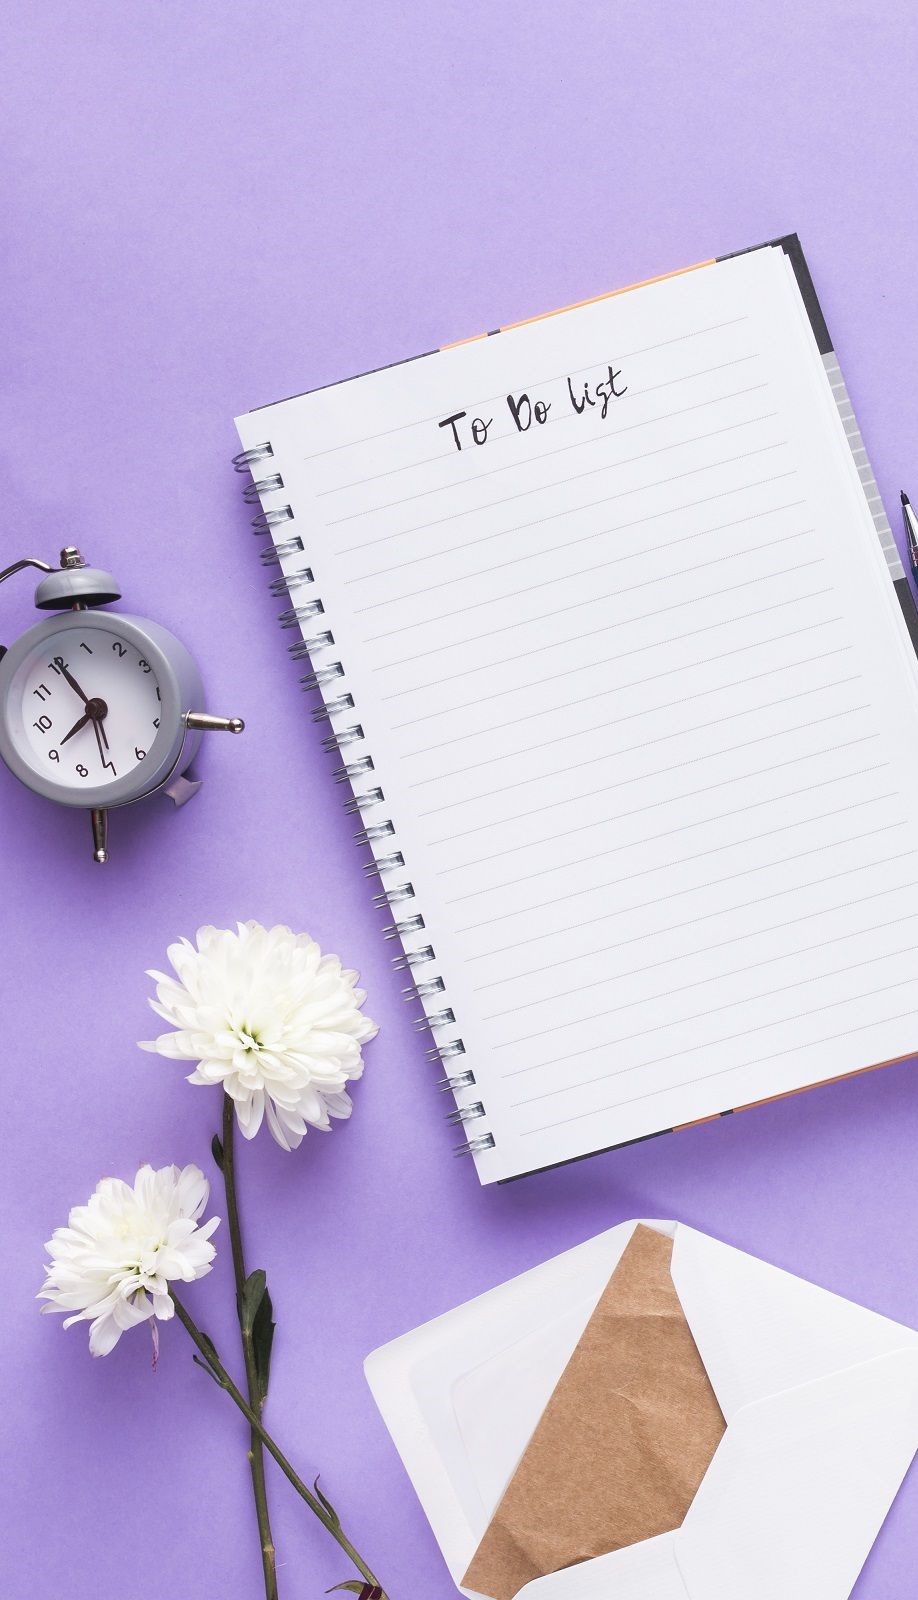 To Do List
12
1
2
3
6
7
8
9
10
11